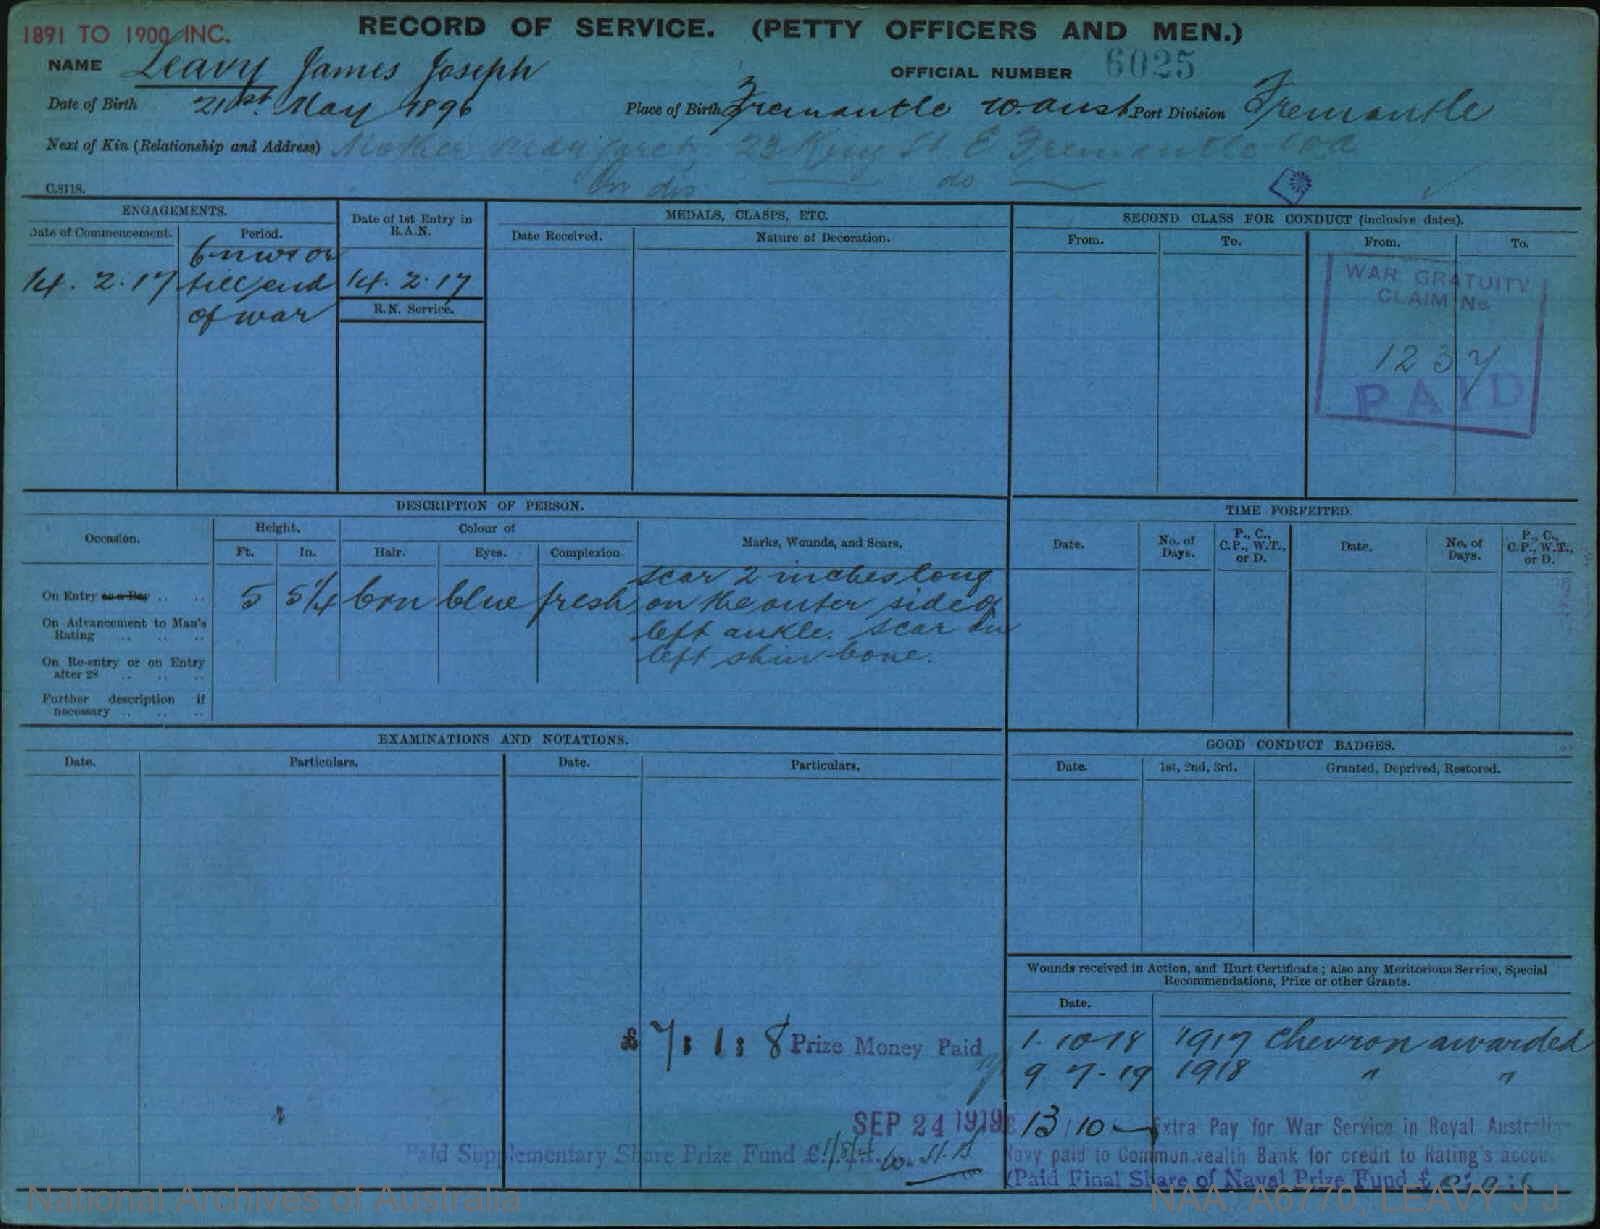 1891 TO 1900 INC.
RECORD OF SERVICE. (PETTY OFFICERS AND MEN.)
NAME Leavy James Joseph
OFFICIAL NUMBER 6025
Date of Birth 21st May 1896 Place of Birth Fremantle W. Aust. Port Division Fremantle
Next of Kin (Relationship and Address) Mother Margaret, 23 King St E Fremantle WA
do
C.8118.
ENGAGEMENTS.
Date of Commencement. Period.
14.2.17
till end
of war
Date of 1st Entry in
R.A.N.
14.2.17
R.N. Service.
MEDALS, CLASPS, ETC.
Date Received. Nature of Decoration.
SECOND CLASS FOR CONDUCT (inclusive dates).
From. To. From. To.
WAR GRATUITY
CLAIM No
1237
PAID
DESCRIPTION OF PERSON.
Occasion. Height. Colour of Marks, Wounds, and Scars.
Ft. In. Hair. Eyes. Complexion
On Entry as a Boy .. .. 5 5¼ brn blue fresh
scar 2 inches long
on the outer side of
left ankle. Scar on
left shin bone.
On Advancement to Man's
Rating .. .. ..
On Re-entry or on Entry
after 28 .. .. ..
Further description if
necessary .. .. ..
TIME FORFEITED.
Date. No. of Days. P., C., C.P., W.T., or D. Date. No. of Days. P., C., C.P., W.T., or D.
EXAMINATIONS AND NOTATIONS.
Date. Particulars. Date. Particulars.
£7:1:8 Prize Money Paid
SEP 24 1919
Paid Supplementary Share Prize Fund £
GOOD CONDUCT BADGES.
Date. 1st, 2nd, 3rd. Granted, Deprived, Restored.
Wounds received in Action, and Hurt Certificate; also any Meritorious Service, Special
Recommendations, Prize or other Grants.
Date.
1-10-18 1917 Chevron awarded
9-7-19 1918 " "
£13/10 Extra Pay for War Service in Royal Australian
Navy paid to Commonwealth Bank for credit to Rating's account
(Paid Final Share of Naval Prize Fund £
National Archives of Australia
NAA: A6770, LEAVY J J